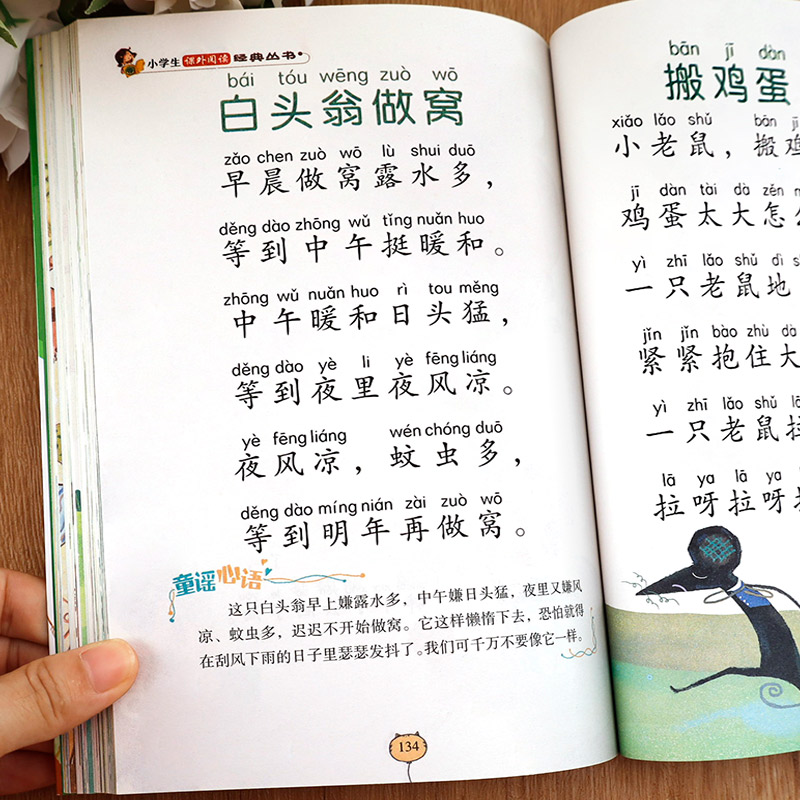 小学生 课外阅读 经典丛书
bái tóu wēng zuò wō
白头翁做窝
zǎo chen zuò wō lù shui duō
早晨做窝露水多，
děng dào zhōng wǔ tǐng nuǎn huo
等到中午挺暖和。
zhōng wǔ nuǎn huo rì tou měng
中午暖和日头猛，
děng dào yè li yè fēng liáng
等到夜里夜风凉。
yè fēng liáng wén chóng duō
夜风凉，蚊虫多，
děng dào míng nián zài zuò wō
等到明年再做窝。
童谣心语
这只白头翁早上嫌露水多，中午嫌日头猛，夜里又嫌风
凉、蚊虫多，迟迟不开始做窝。它这样懒惰下去，恐怕就得
在刮风下雨的日子里瑟瑟发抖了。我们可千万不要像它一样。
134
bān jī dàn
搬鸡蛋
xiǎo lǎo shǔ bān jī
小老鼠，搬鸡
jī dàn tài dà zěn
鸡蛋太大怎么
yì zhī lǎo shǔ dì
一只老鼠地
jǐn jǐn bào zhù dà
紧紧抱住大
yì zhī lǎo shǔ lā
一只老鼠拉
lā ya lā ya lā
拉呀拉呀拉